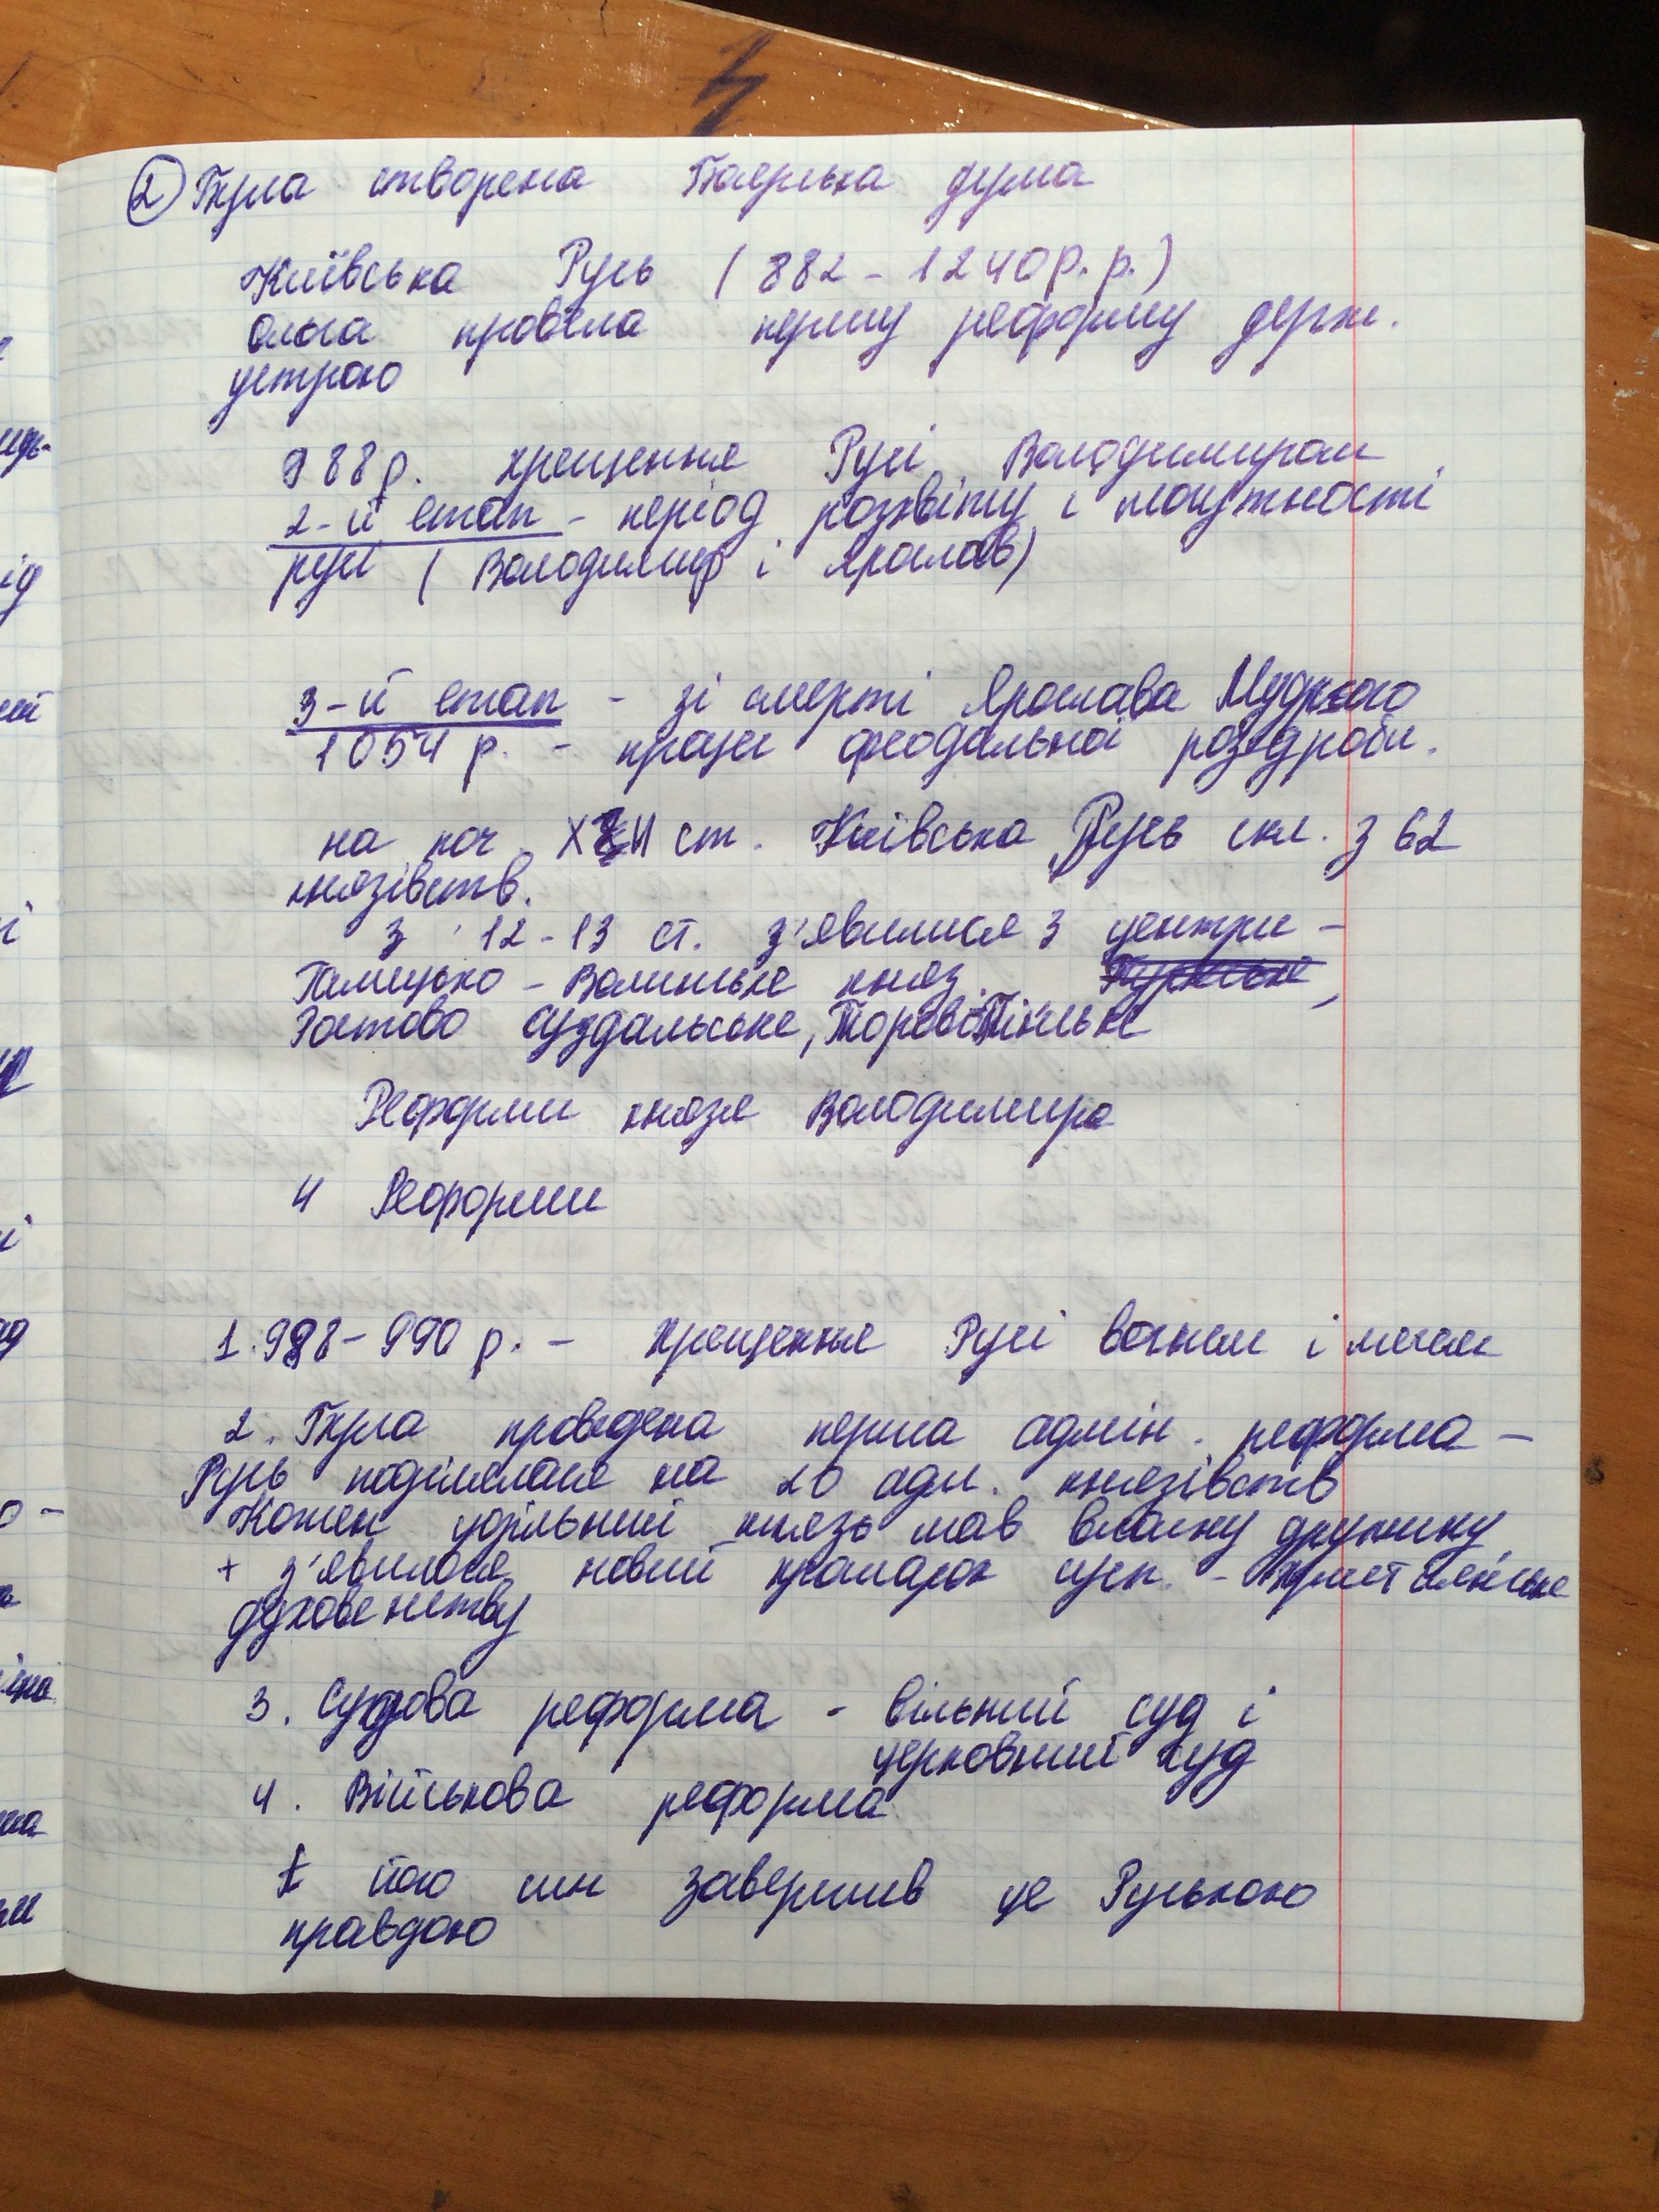 2 Була створена Боярська дума
Київська Русь (882 - 1240 р. р.)
Ольга провела першу реформу держ.
устрою
988 р. хрещення Русі Володимиром
2-й етап - період розквіту і могутності
русі (Володимир і Ярослав)
3-й етап - зі смерті Ярослава Мудрого
1054 р. - процес феодальної роздробл.
на поч. XII ст. Київська Русь скл. з 62
князівств.
з 12-13 ст. з'явилися 3 центри -
Галицько - Волинське княз.,
Ростово Суздальське,
Реформи князя Володимира
4 Реформи
1. 988 - 990 р. - хрещення Русі вогнем і мечем
2. Була проведена перша адмін. реформа -
Русь поділялася на 20 адм. князівств
Кожен удільний князь мав власну дружину
+ з'явилося новий прошарок сусп. - християнське
духовенству
3. Судова реформа - вільний суд і
церковний суд
4. Військова реформа
+ його син завершив це Руською
правдою